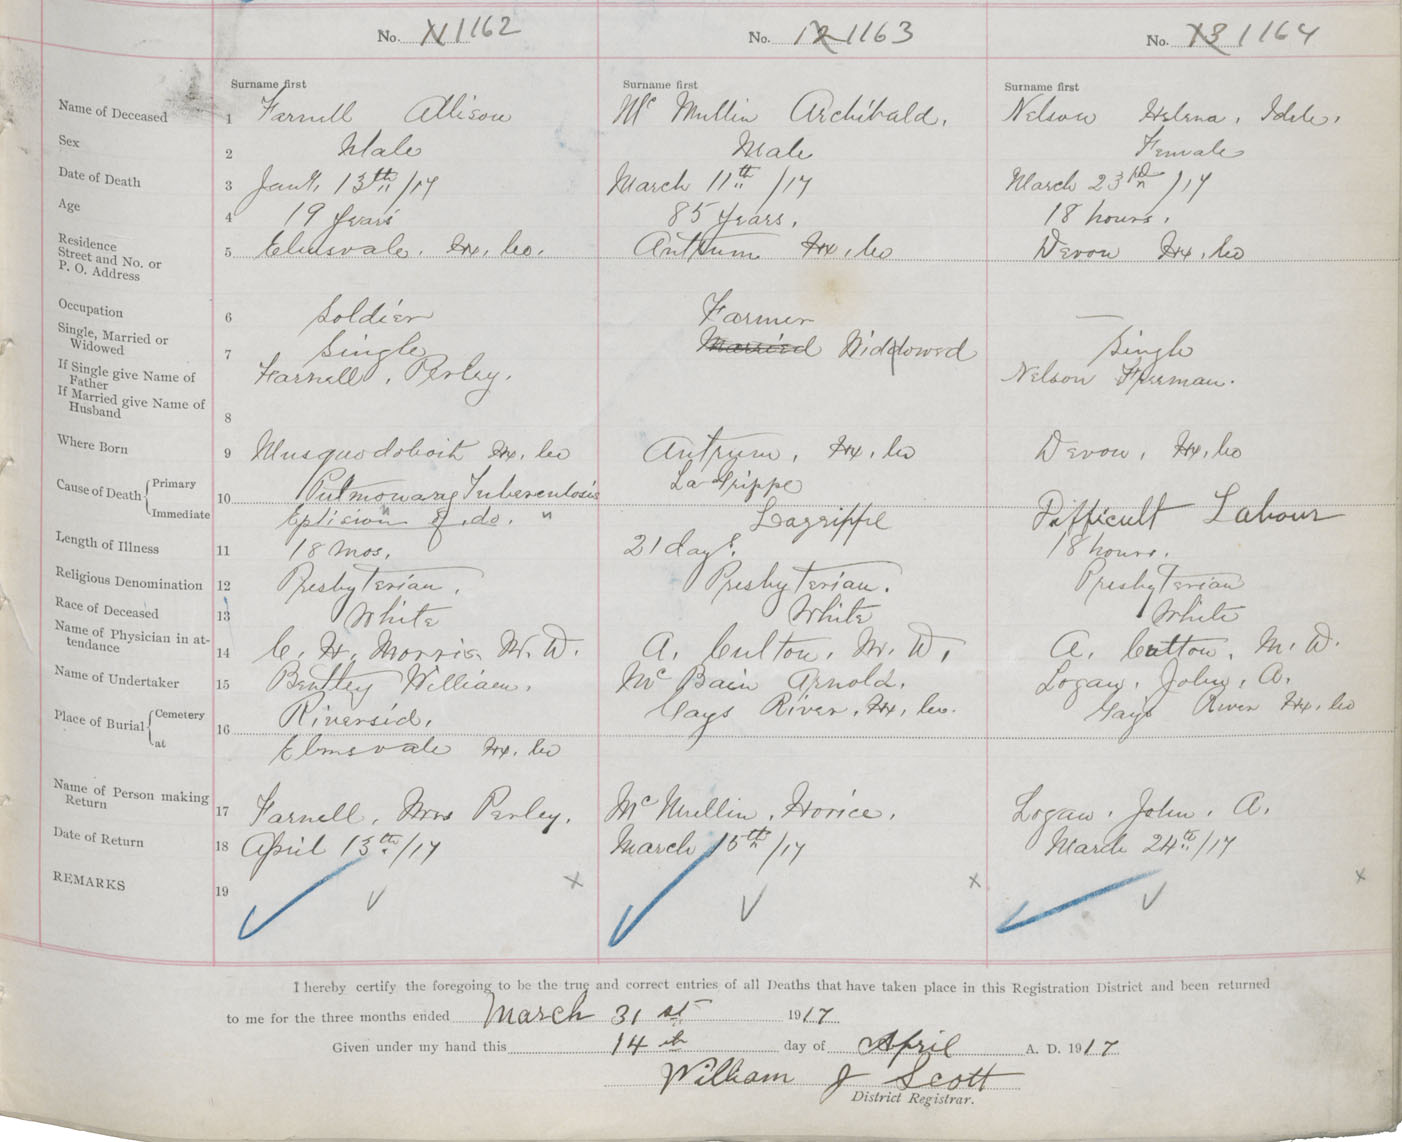 No. 11 1162 No. 12 1163 No. 13 1164
Surname first Surname first Surname first
Name of Deceased 1 Farnell Allison Mc Mullin Archibald. Nelson Helena. Idele.
Sex 2 Male Male Female
Date of Death 3 Jany. 13th/17 March 11th/17 March 23rd/17
Age 4 19 years 85 years. 18 hours.
Residence
Street and No. or
P. O. Address 5 Elmsvale. Hx. Co. Antrum Hx. Co Devon Hx. Co
Occupation 6 Soldier Farmer —
Single, Married or
Widowed 7 Single Married Widdowed Single
If Single give Name of
Father Farnell, Perley. Nelson Freeman.
If Married give Name of
Husband 8
Where Born 9 Musquodoboit Hx. Co Antrum, Hx. Co Devon, Hx. Co
Cause of Death Primary 10 Pulmonary Tuberculosis La Grippe
Immediate of do. " Lagrippe Difficult Labour
Length of Illness 11 18 mos. 21 days. 18 hours.
Religious Denomination 12 Presbyterian. Presbyterian. Presbyterian
Race of Deceased 13 White White White
Name of Physician in at-
tendance 14 C. H. Morris M. D. A. Cutton, M. D. A. Cutton, M. D.
Name of Undertaker 15 Bentley William. Mc Bain Arnold. Logan, John, A.
Place of Burial Cemetery 16 Riversid. Gays River, Hx. Co. Gays River Hx. Co
at Elmsvale Hx. Co
Name of Person making
Return 17 Farnell, Mrs Perley. Mc Mullin, Horice. Logan, John, A.
Date of Return 18 April 13th/17 March 15th/17 March 24th/17
REMARKS 19
I hereby certify the foregoing to be the true and correct entries of all Deaths that have taken place in this Registration District and been returned
to me for the three months ended March 31st 1917
Given under my hand this 14th day of April A. D. 1917
William J Scott
District Registrar.